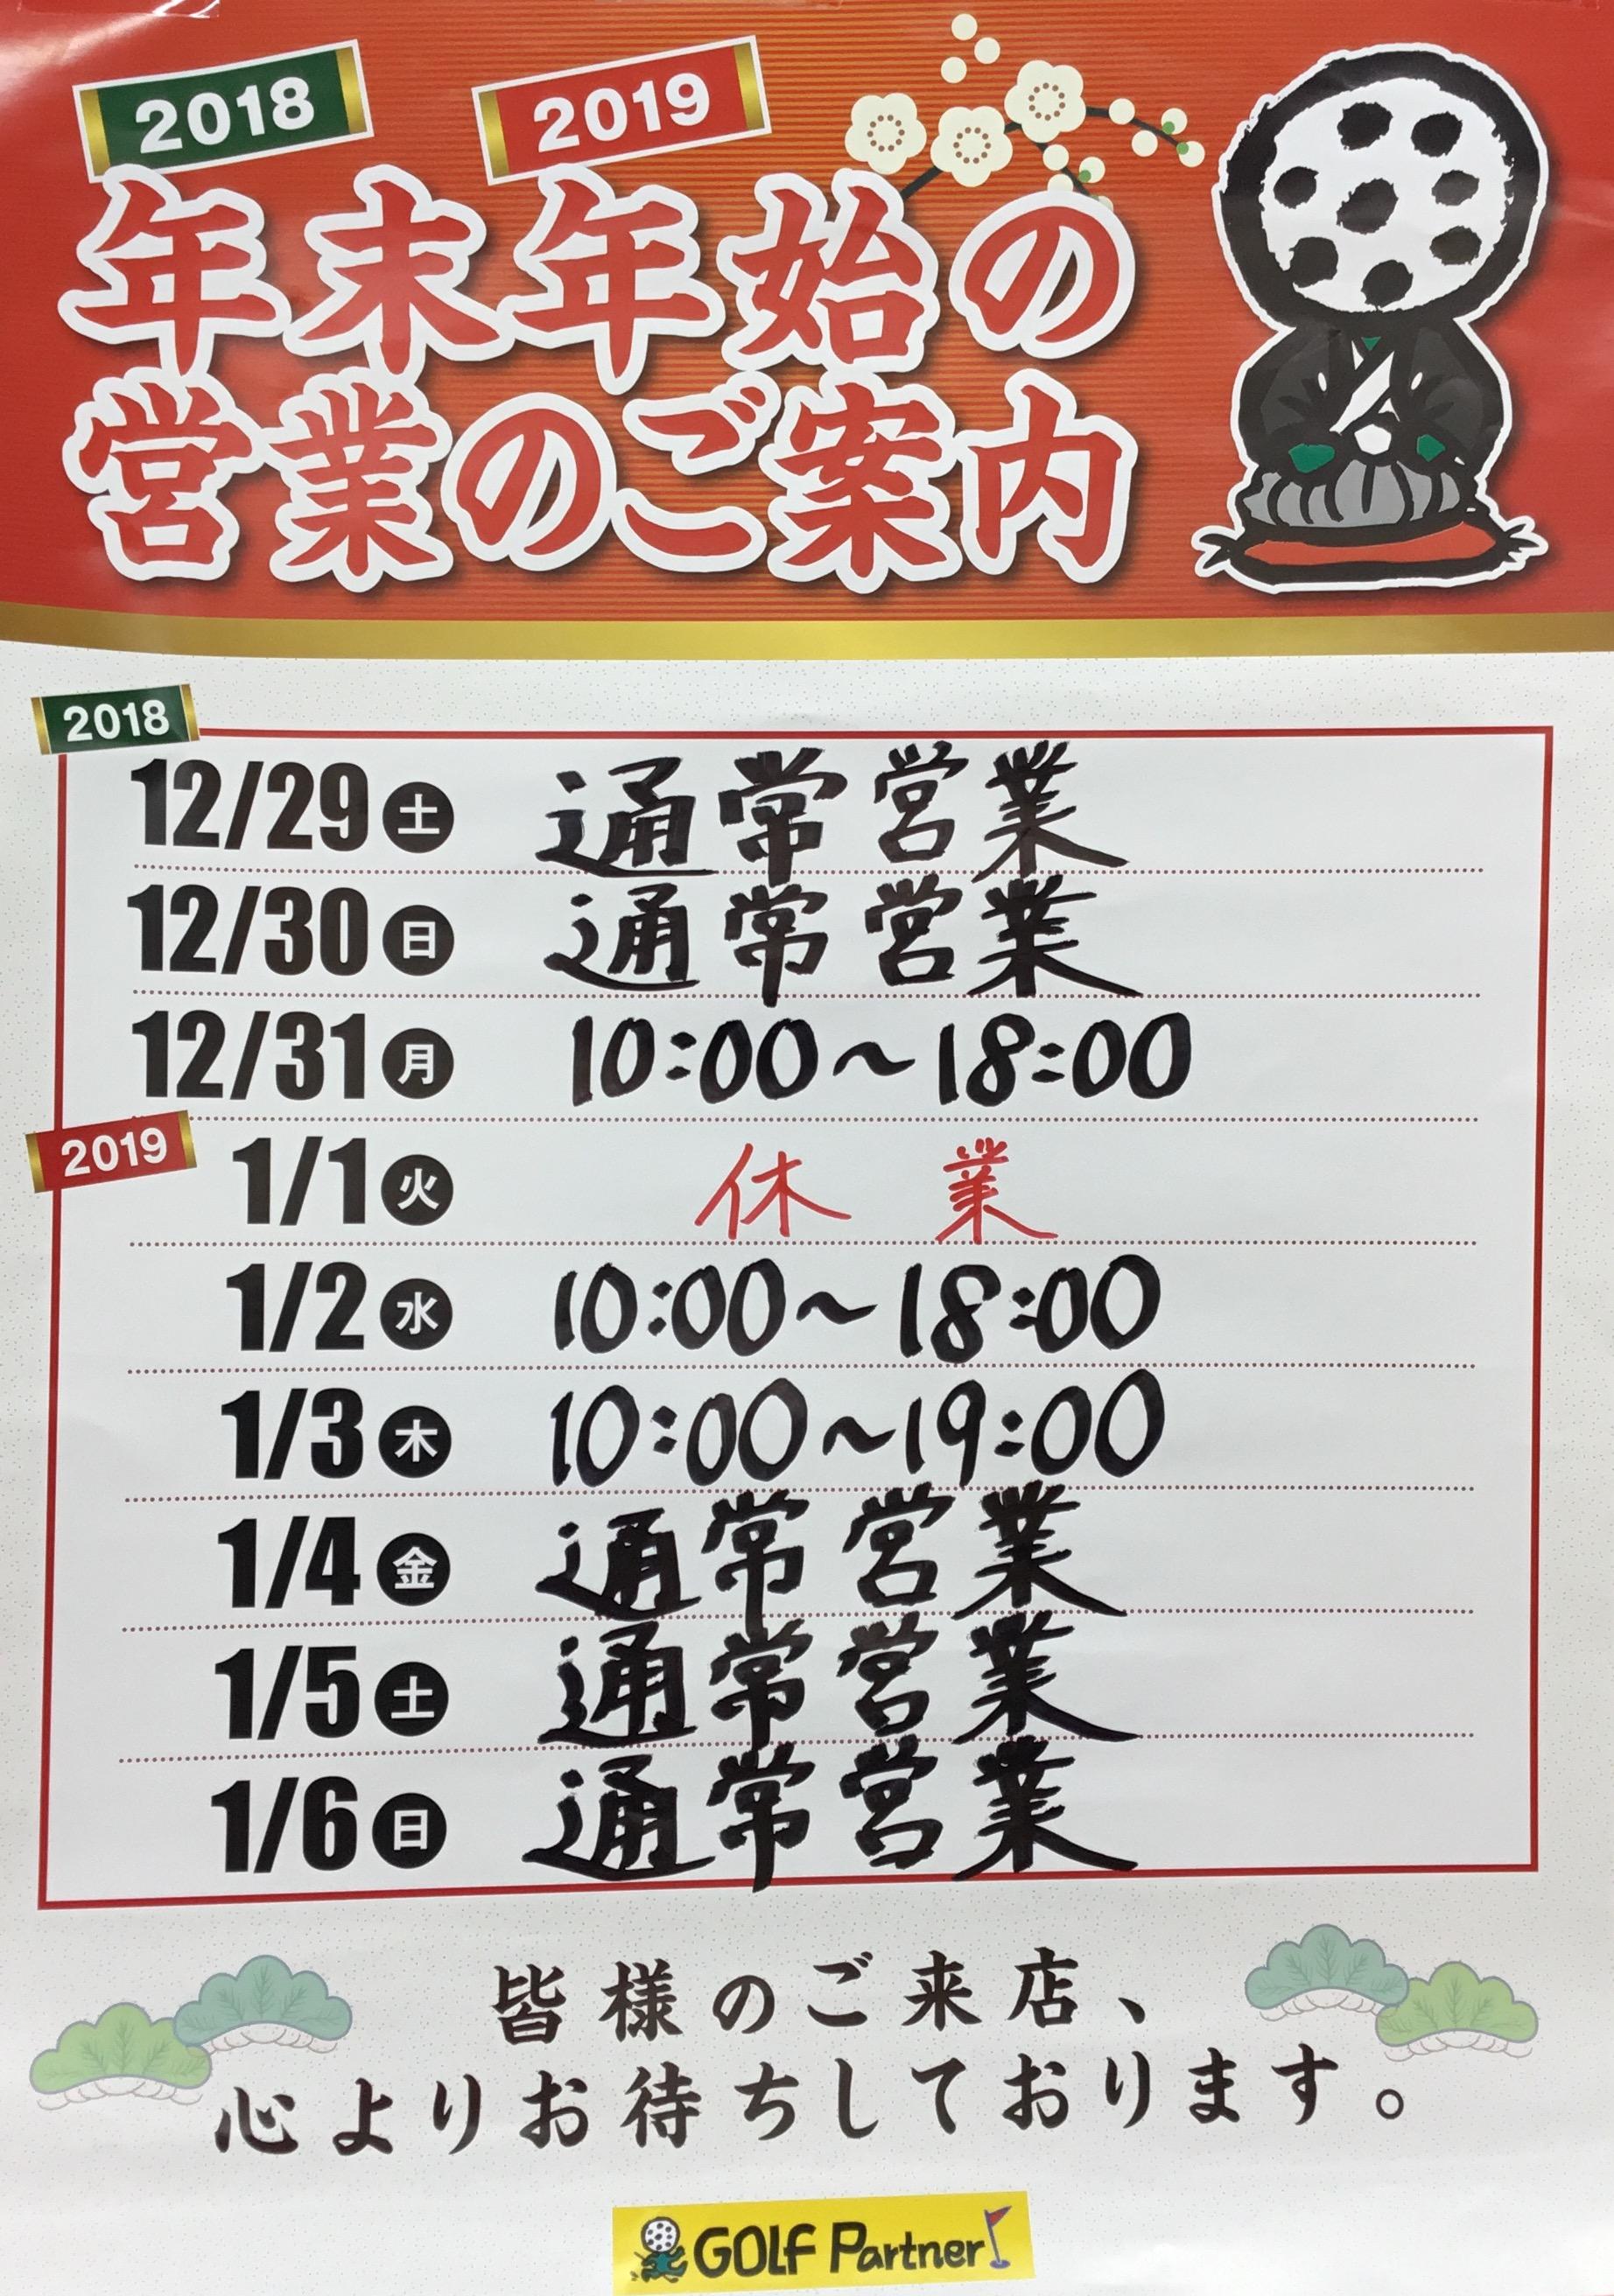 2018 2019
年末年始の
営業のご案内
2018
12/29 土 通常営業
12/30 日 通常営業
12/31 月 10:00～18:00
2019
1/1 火 休業
1/2 水 10:00～18:00
1/3 木 10:00～19:00
1/4 金 通常営業
1/5 土 通常営業
1/6 日 通常営業
皆様のご来店、
心よりお待ちしております。
GOLF Partner